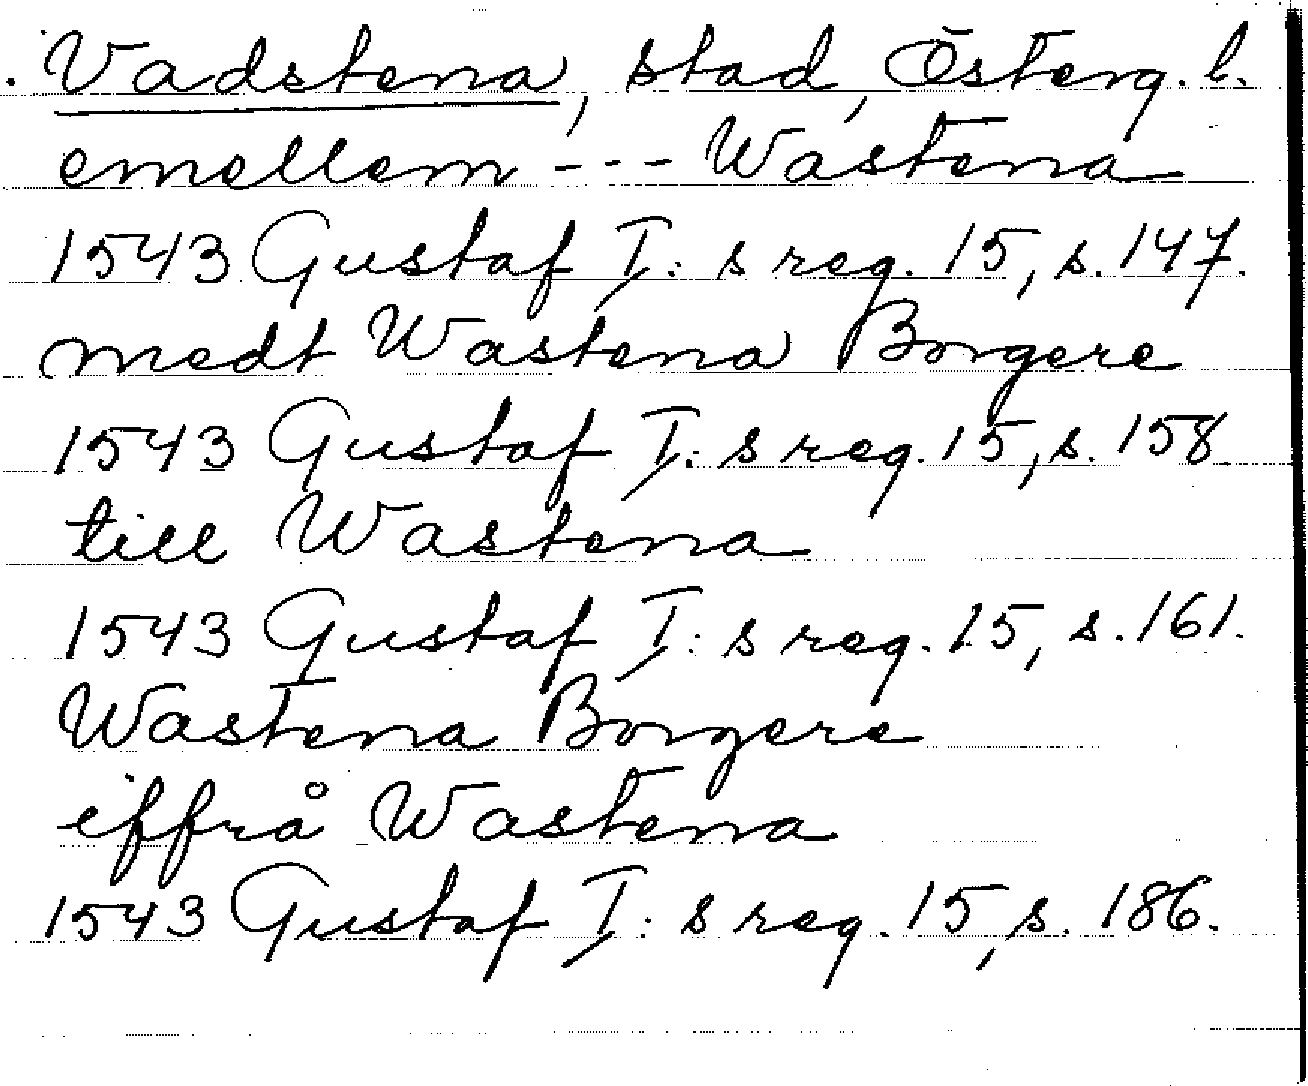 Vadstena, stad, Österg. l.
emellem --- Wastena
1543 Gustaf I: s reg. 15, s. 147.
medt Wastena Borgere
1543 Gustaf I: s reg. 15, s. 158
till Wastena
1543 Gustaf I: s reg. 15, s. 161.
Wastena Borgere
iffrå Wastena
1543 Gustaf I: s reg. 15, s. 186.